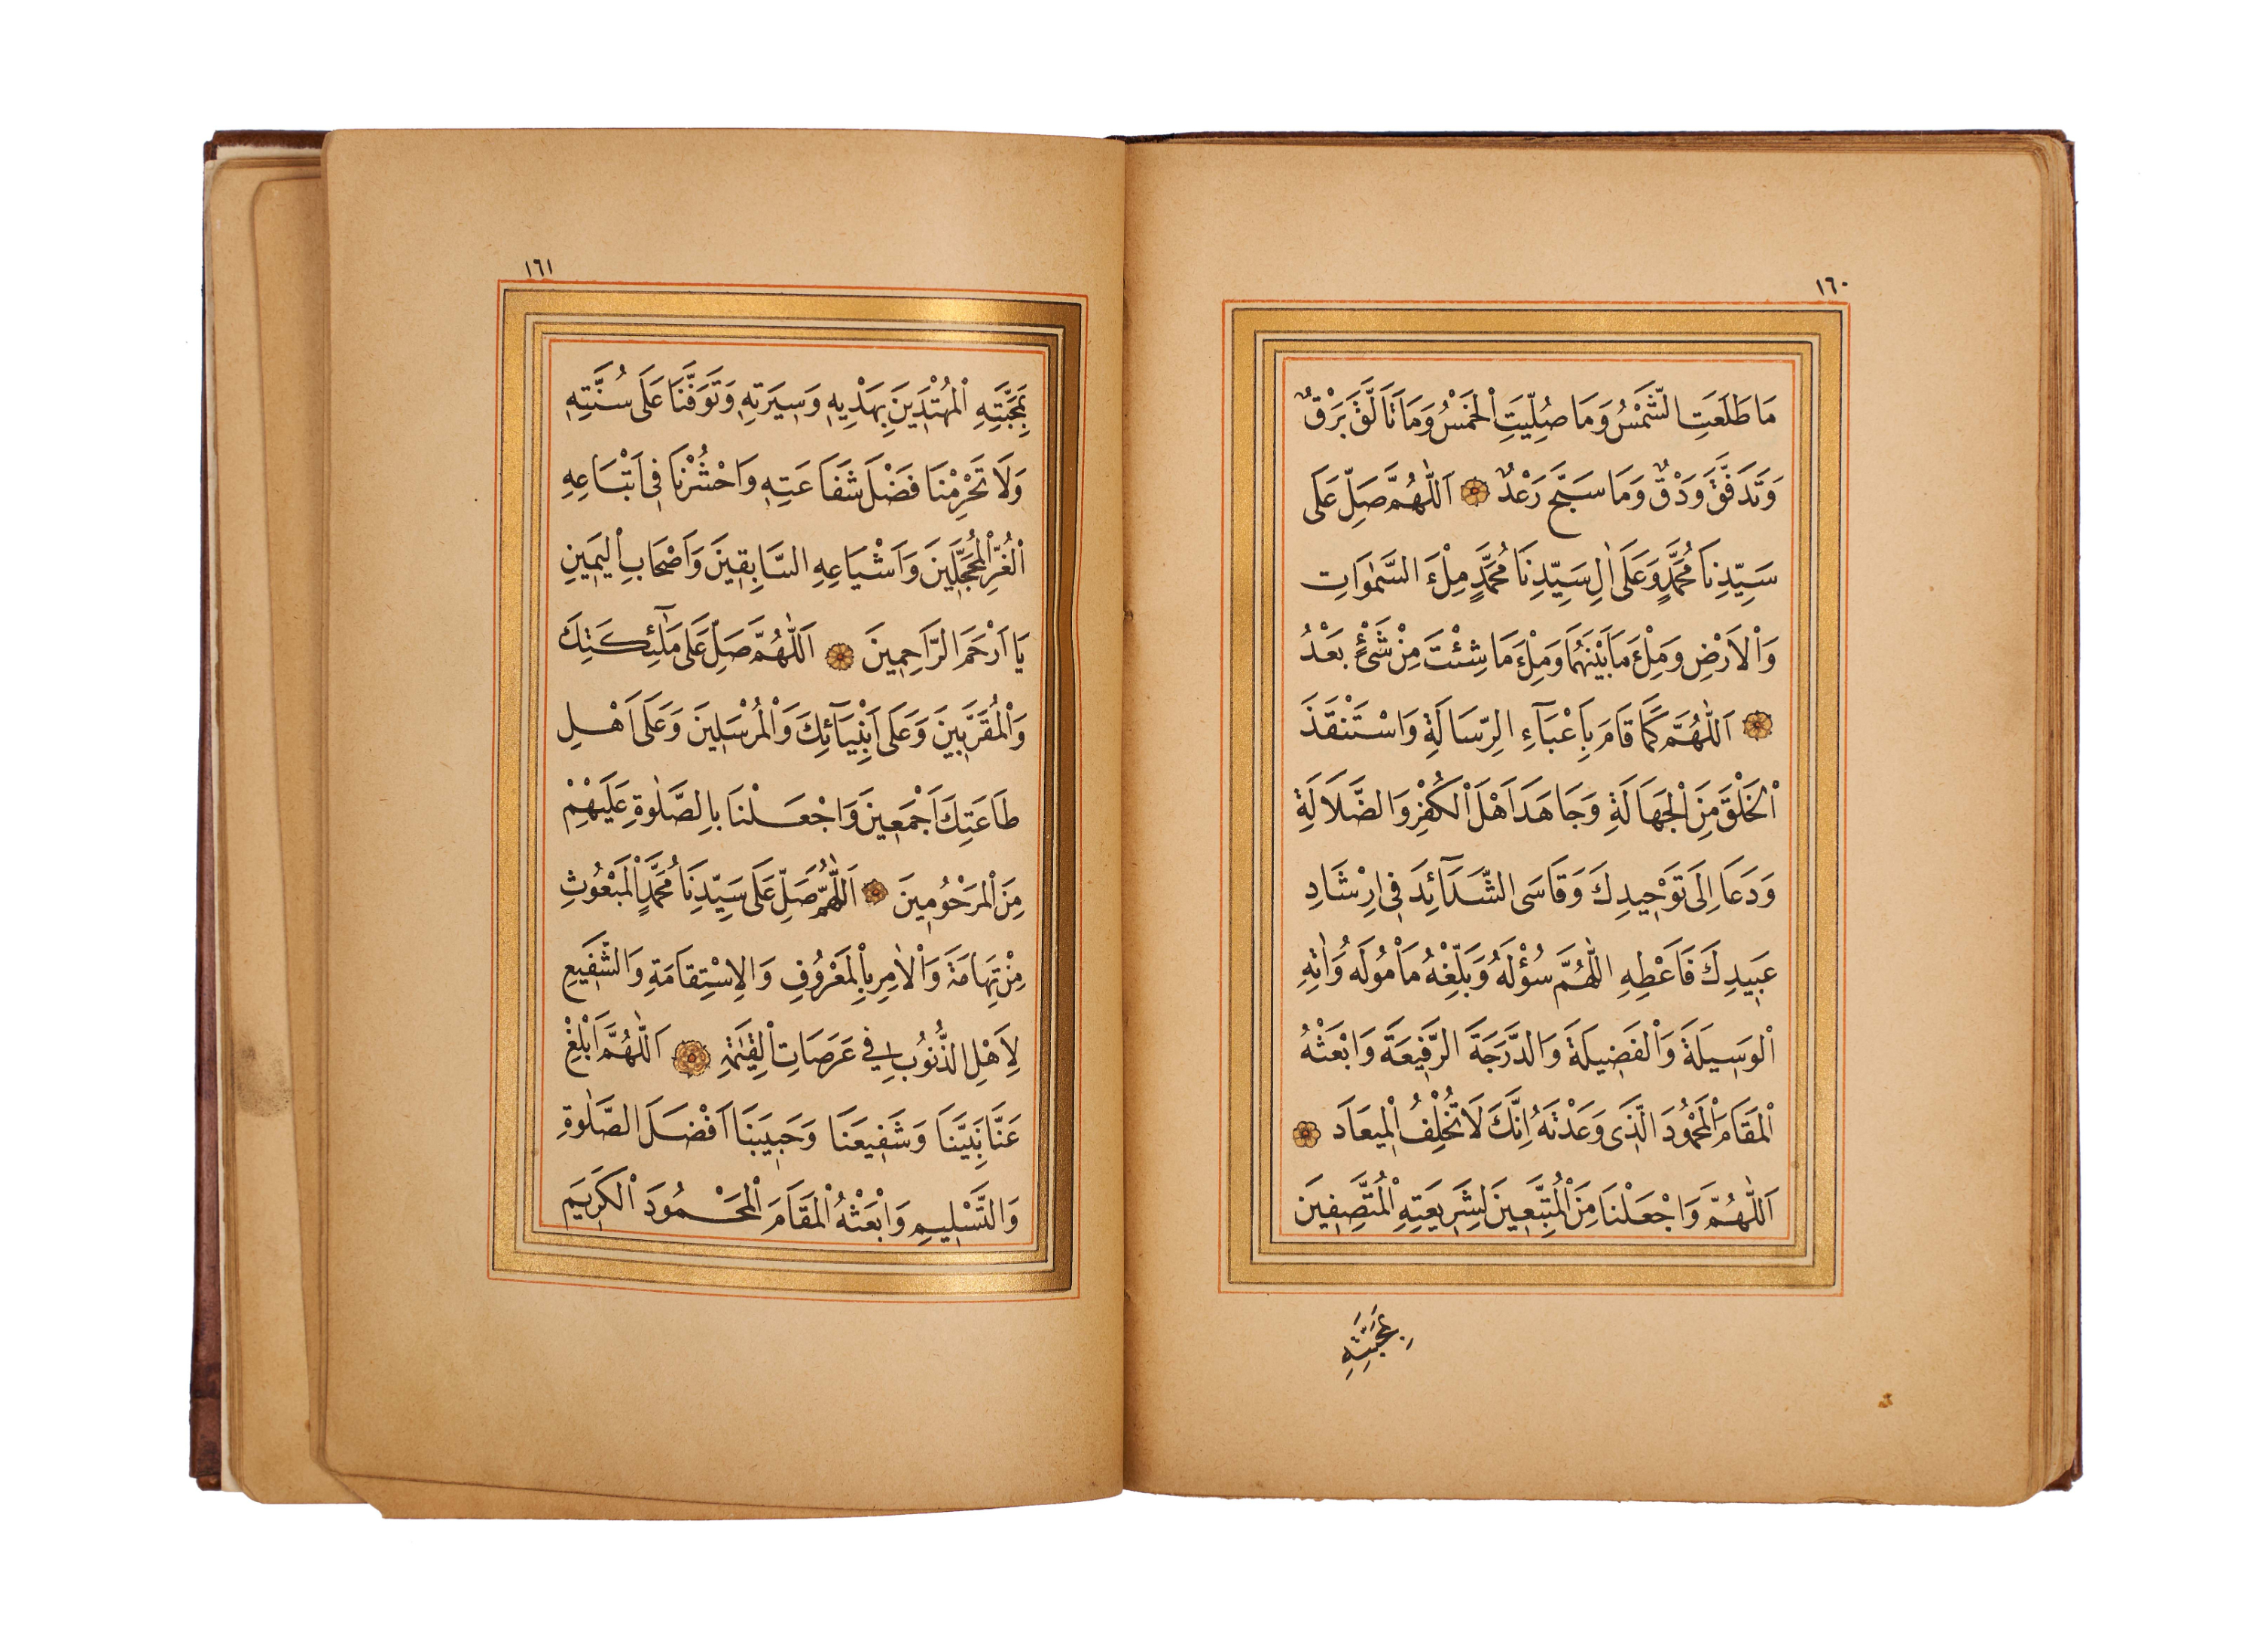 ١٦٠
مَا طَلَعَتِ الشَّمْسُ وَمَا صُلِّيَتِ الْخَمْسُ وَمَا تَاَلَّقَ بَرْقٌ
وَتَدَفَّقَ وَدْقٌ وَمَا سَبَّحَ رَعْدٌ اَللّٰهُمَّ صَلِّ عَلَى
سَيِّدِنَا مُحَمَّدٍ وَعَلَى اٰلِ سَيِّدِنَا مُحَمَّدٍ مِلْءَ السَّمٰوَاتِ
وَالْاَرْضِ وَمِلْءَ مَا بَيْنَهُمَا وَمِلْءَ مَا شِئْتَ مِنْ شَىْءٍ بَعْدُ
اَللّٰهُمَّ كَمَا قَامَ بِاَعْبَآءِ الرِّسَالَةِ وَاسْتَنْقَذَ
الْخَلْقَ مِنَ الْجَهَالَةِ وَجَاهَدَ اَهْلَ الْكُفْرِ وَالضَّلَالَةِ
وَدَعَا اِلَى تَوْحِيدِكَ وَقَاسَى الشَّدَآئِدَ فِى اِرْشَادِ
عَبِيدِكَ فَاَعْطِهِ اللّٰهُمَّ سُؤْلَهُ وَبَلِّغْهُ مَاْمُولَهُ وَاٰتِهِ
الْوَسِيلَةَ وَالْفَضِيلَةَ وَالدَّرَجَةَ الرَّفِيعَةَ وَابْعَثْهُ
الْمَقَامَ الْمَحْمُودَ الَّذِى وَعَدْتَهُ اِنَّكَ لَا تُخْلِفُ الْمِيعَادَ
اَللّٰهُمَّ وَاجْعَلْنَا مِنَ الْمُتَّبِعِينَ لِشَرِيعَتِهِ الْمُتَّصِفِينَ
بِمَحَبَّتِهِ
١٦١
بِمَحَبَّتِهِ الْمُهْتَدِينَ بِهَدْيِهِ وَسِيرَتِهِ وَتَوَفَّنَا عَلَى سُنَّتِهِ
وَلَا تَحْرِمْنَا فَضْلَ شَفَاعَتِهِ وَاحْشُرْنَا فِى اَتْبَاعِهِ
الْغُرِّ الْمُحَجَّلِينَ وَاَشْيَاعِهِ السَّابِقِينَ وَاَصْحَابِ الْيَمِينِ
يَا اَرْحَمَ الرَّاحِمِينَ اَللّٰهُمَّ صَلِّ عَلَى مَلٰٓئِكَتِكَ
وَالْمُقَرَّبِينَ وَعَلَى اَنْبِيَآئِكَ وَالْمُرْسَلِينَ وَعَلَى اَهْلِ
طَاعَتِكَ اَجْمَعِينَ وَاجْعَلْنَا بِالصَّلٰوةِ عَلَيْهِمْ
مِنَ الْمَرْحُومِينَ اَللّٰهُمَّ صَلِّ عَلَى سَيِّدِنَا مُحَمَّدٍ الْمَبْعُوثِ
مِنْ تِهَامَةَ وَالْاٰمِرِ بِالْمَعْرُوفِ وَالْاِسْتِقَامَةِ وَالشَّفِيعِ
لِاَهْلِ الذُّنُوبِ فِى عَرَصَاتِ الْقِيٰمَةِ اَللّٰهُمَّ اَبْلِغْ
عَنَّا نَبِيَّنَا وَشَفِيعَنَا وَحَبِيبَنَا اَفْضَلَ الصَّلٰوةِ
وَالتَّسْلِيمِ وَابْعَثْهُ الْمَقَامَ الْمَحْمُودَ الْكَرِيمَ